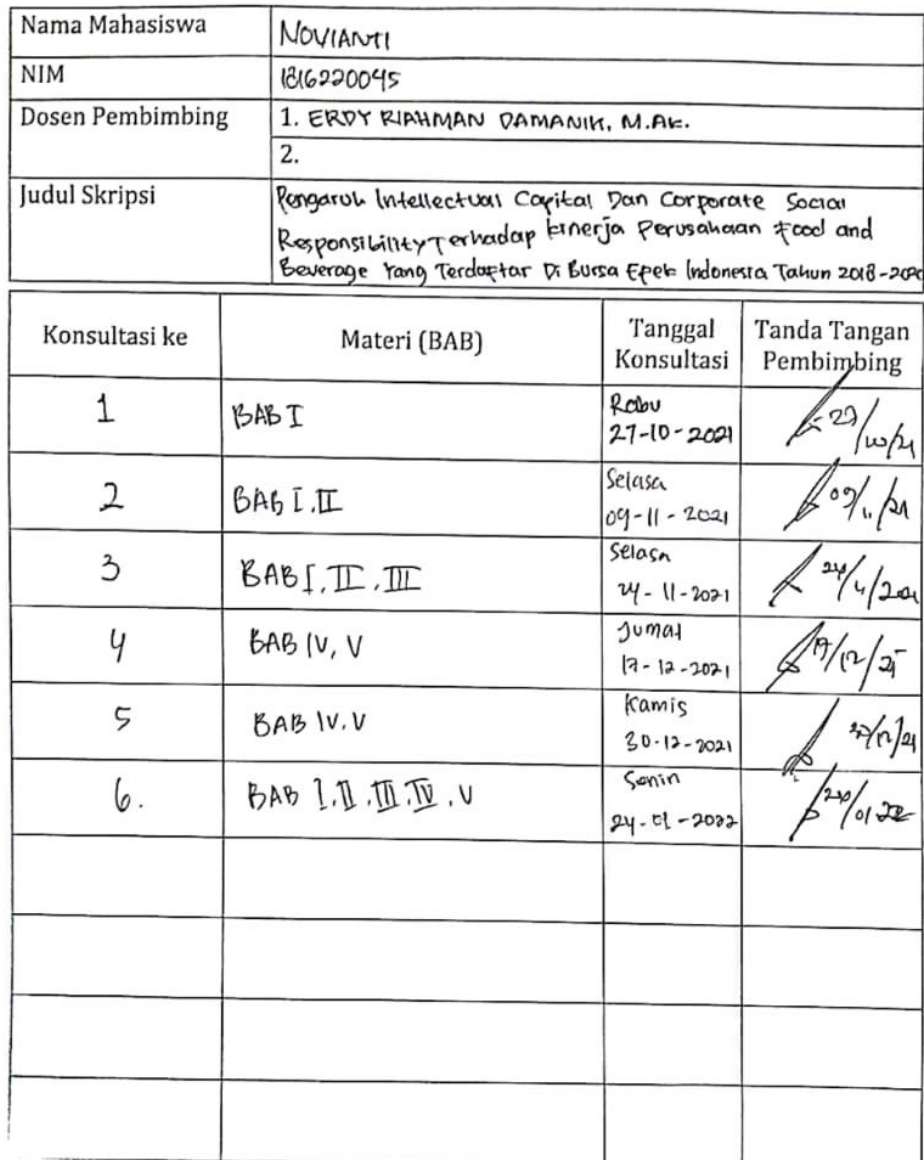 Nama Mahasiswa NOVIANTI
NIM 1816220045
Dosen Pembimbing 1. ERDY RIAHMAN DAMANIK, M.Ak.
2.
Judul Skripsi Pengaruh Intellectual Capital Dan Corporate Social
Responsibility Terhadap kinerja Perusahaan Food and
Beverage Yang Terdaftar Di Bursa Efek Indonesia Tahun 2018-2020
Konsultasi ke Materi (BAB) Tanggal Konsultasi Tanda Tangan Pembimbing
1 BAB I Rabu 27-10-2021 27/10/21
2 BAB I.II Selasa 09-11-2021 09/11/21
3 BAB I.II.III Selasa 24-11-2021
4 BAB IV, V Jumat 17-12-2021
5 BAB IV.V Kamis 30-12-2021
6. BAB I.II.III.IV.V Senin 24-01-2022